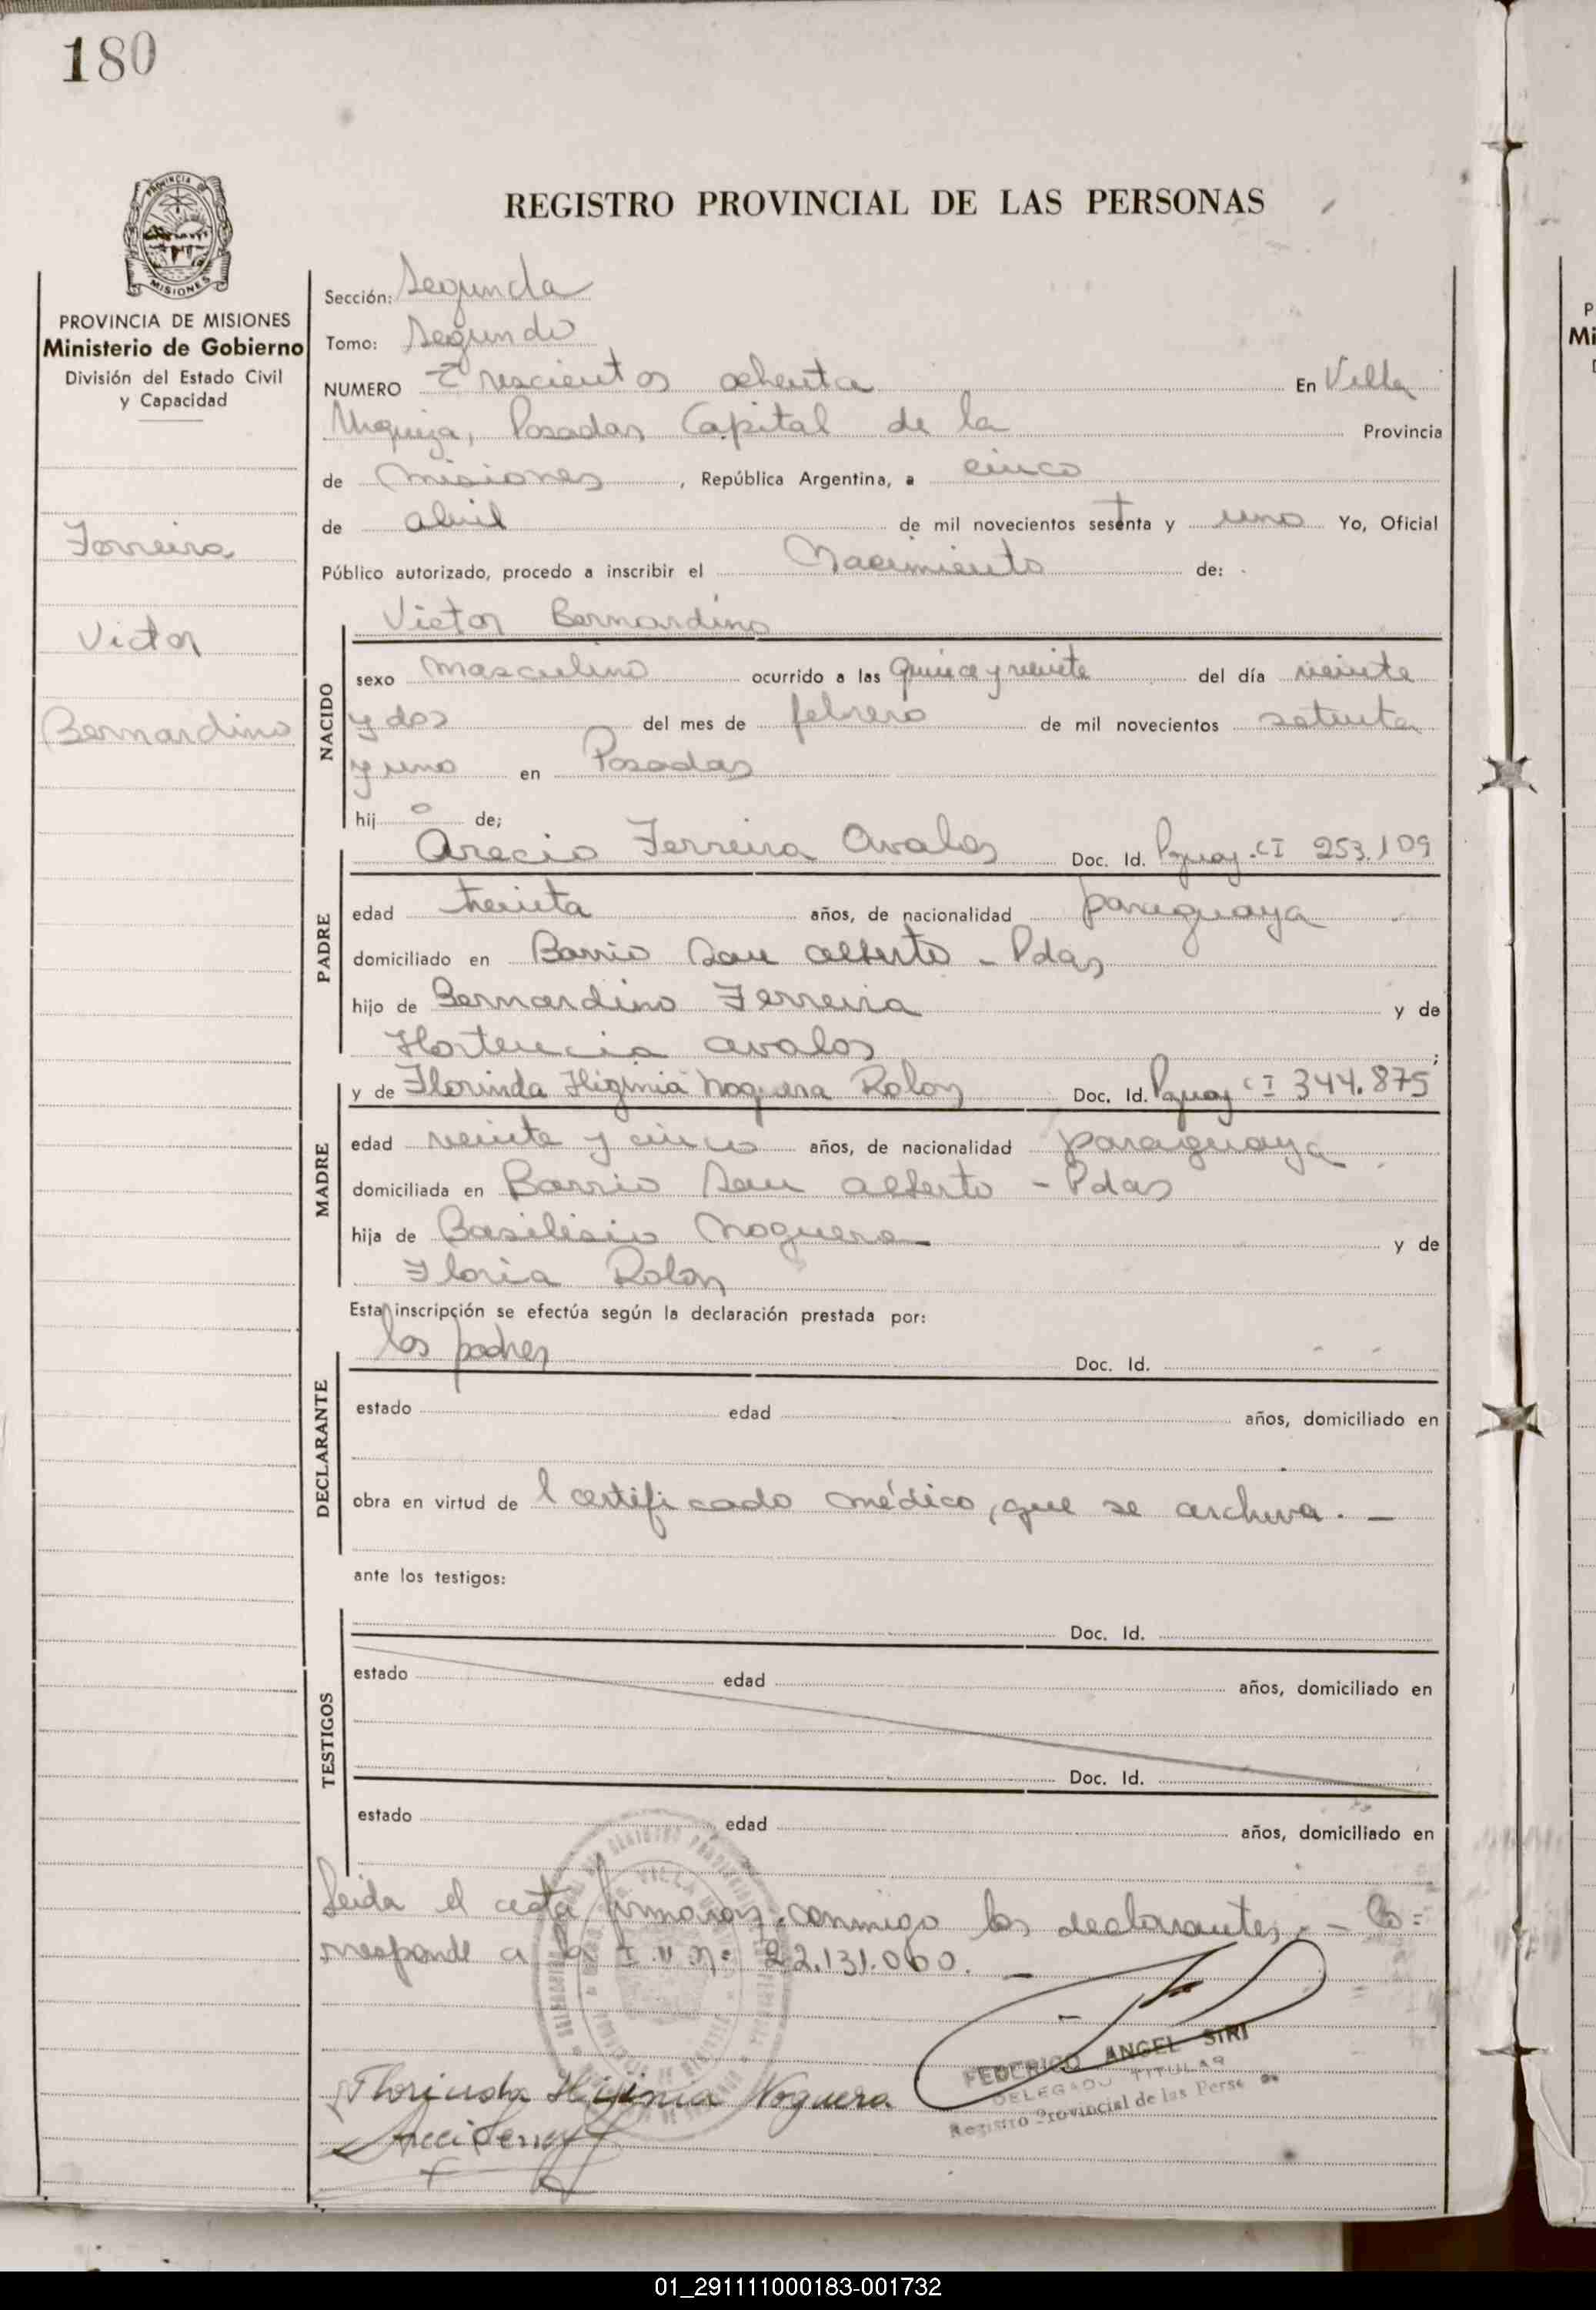 180
PROVINCIA DE
MISIONES
REGISTRO PROVINCIAL DE LAS PERSONAS
PROVINCIA DE MISIONES
Ministerio de Gobierno
División del Estado Civil
y Capacidad
Ferreira
Victor
Bernardino
Sección: Segunda
Tomo: Segundo
NUMERO Trescientos ochenta En Villa
Urquiza, Posadas Capital de la Provincia
de Misiones, República Argentina, a cinco
de abril de mil novecientos setenta y uno Yo, Oficial
Público autorizado, procedo a inscribir el Nacimiento de:
NACIDO
Victor Bernardino
sexo masculino ocurrido a las quince y veinte del día veinte
y dos del mes de febrero de mil novecientos setenta
y uno en Posadas
hijo de;
PADRE
Arecio Ferreira Avalos Doc. Id. Pguay. CI 253.109
edad treinta años, de nacionalidad paraguaya
domiciliado en Barrio San Alberto - Pdas
hijo de Bernardino Ferreira y de
Hortencia Avalos;
MADRE
y de Florinda Higinia Noguera Rolon Doc. Id. Pguay CI 344.875
edad veinte y cinco años, de nacionalidad paraguaya
domiciliada en Barrio San Alberto - Pdas
hija de Basilisio Noguera y de
Floria Rolon
Esta inscripción se efectúa según la declaración prestada por:
DECLARANTE
los padres Doc. Id.
estado edad años, domiciliado en
obra en virtud de l certificado médico, que se archiva. -
ante los testigos:
TESTIGOS
Doc. Id.
estado edad años, domiciliado en
Doc. Id.
estado edad años, domiciliado en
Leida el acta firmaron conmigo los declarantes. - Co=
rresponde a la I.n.º 22.131.060. -
FEDERICO ANGEL SIRI
DELEGADO TITULAR
Registro Provincial de las Personas
Florinda Higinia Noguera
P
Mi
01_291111000183-001732